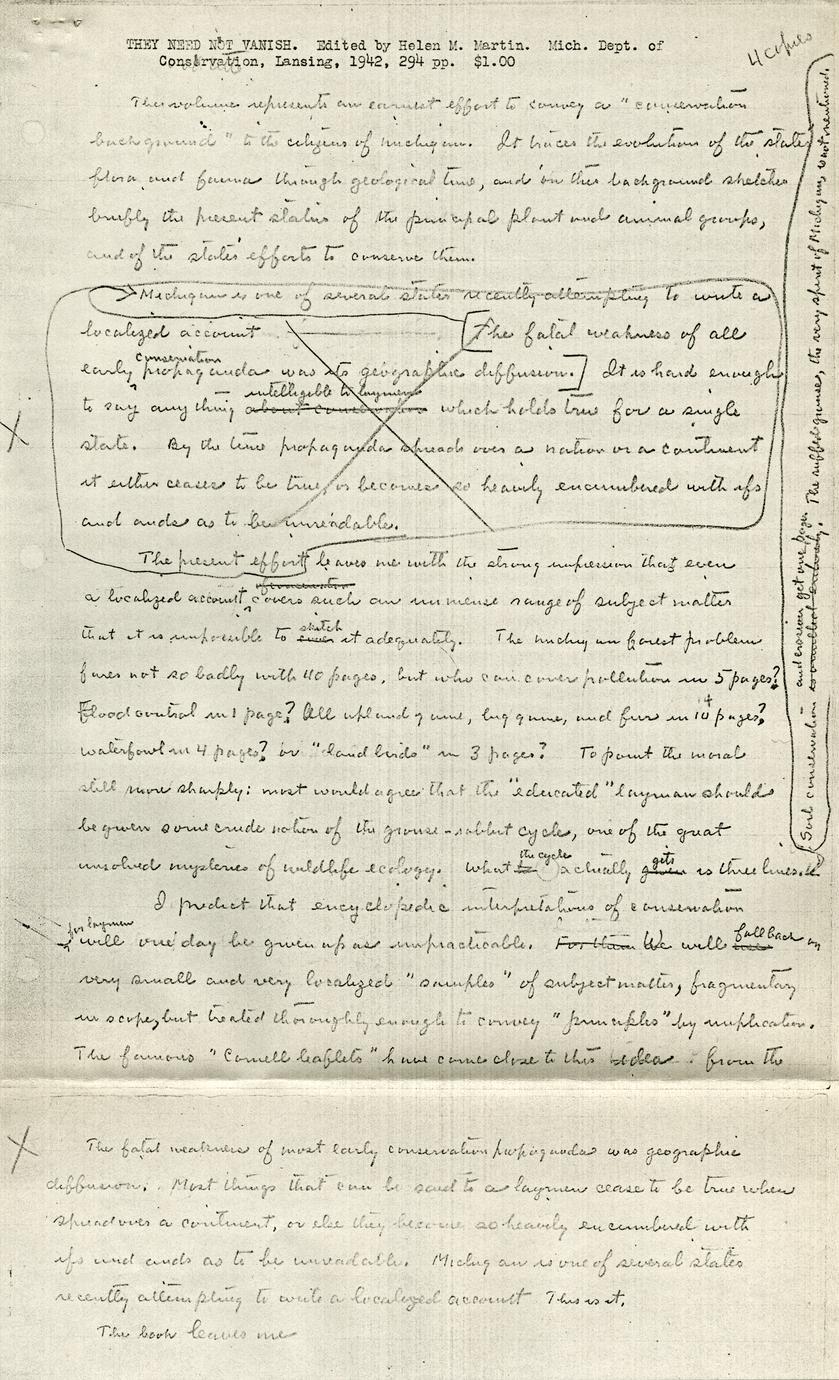 4 copies
THEY NEED NOT VANISH. Edited by Helen M. Martin. Mich. Dept. of
Conservation, Lansing, 1942, 294 pp. $1.00
This volume represents an earnest effort to convey a "conservation
background" to the citizens of Michigan. It traces the evolution of the states
flora and fauna through geological time, and on this background sketches
briefly the present status of the principal plant and animal groups,
and of the states' efforts to conserve them.
Michigan is one of several states recently attempting to write a
localized account [The fatal weakness of all
conservation
early propaganda was its geographic diffusion.] It is hard enough
intelligible to laymen
to say anything about conservation which holds true for a single
state. By the time propaganda spreads over a nation or a continent
it either ceases to be true, or becomes so heavily encumbered with ifs
and ands as to be unreadable.
The present effort leaves me with the strong impression that even
of conservation
a localized account covers such an immense range of subject matter
sketch
that it is impossible to cover it adequately. The Michigan forest problem
fares not so badly with 40 pages, but who can cover pollution in 5 pages?
Flood control in 1 page? All upland game, big game, and fur in 14 pages?
waterfowl in 4 pages? or "land birds" in 3 pages? To point the moral
still more sharply: most would agree that the "educated" layman should
be given some crude notion of the grouse-rabbit cycle, one of the great
unsolved mysteries of wildlife ecology. What the cycle actually gets is three lines.
I predict that encyclopedic interpretations of conservation
for laymen
will one day be given up as impracticable. For them We will fall back on
very small and very localized "samples" of subject matter, fragmentary
in scope, but treated thoroughly enough to convey "principles" by implication.
The famous "Cornell leaflets" have come close to this idea. From the
and erosion get one page.
Soil conservation is omitted entirely. The ruffed grouse, the very spirit of Michigan, is not mentioned.
The fatal weakness of most early conservation propaganda was geographic
diffusion. Most things that can be said to a laymen cease to be true when
spread over a continent, or else they become so heavily encumbered with
ifs and ands as to be unreadable. Michigan is one of several states
recently attempting to write a localized account This is it.
The book leaves me